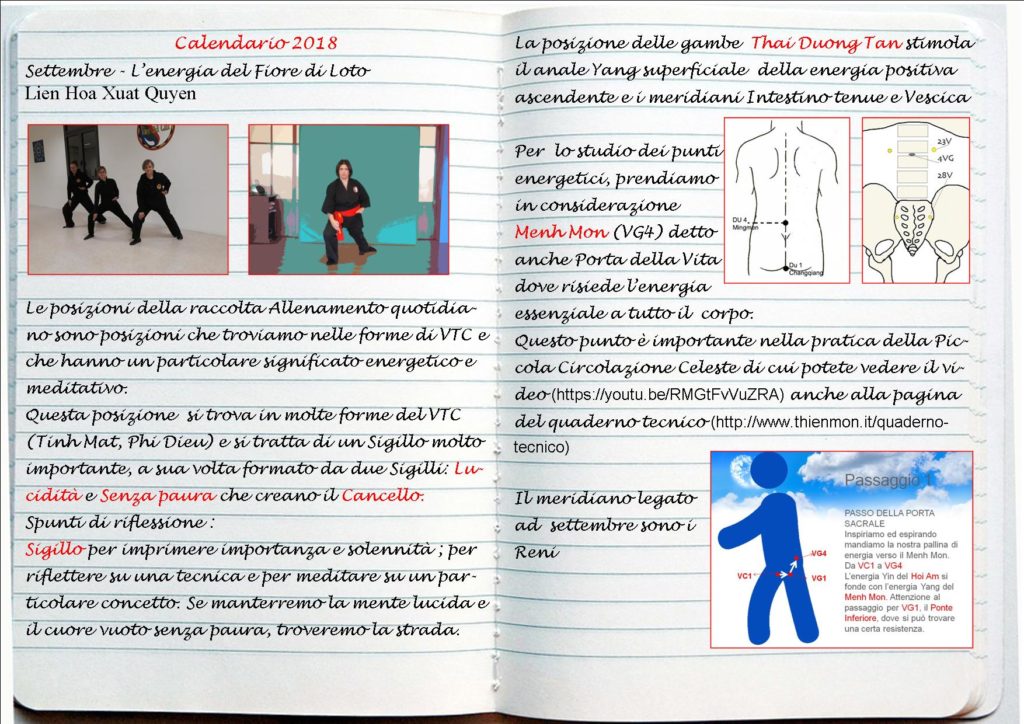 Calendario 2018
Settembre - L'energia del Fiore di Loto
Lien Hoa Xuat Quyen
Le posizioni della raccolta Allenamento quotidia-
no sono posizioni che troviamo nelle forme di VTC e
che hanno un particolare significato energetico e
meditativo.
Questa posizione si trova in molte forme del VTC
(Tinh Mat, Phi Dieu) e si tratta di un Sigillo molto
importante, a sua volta formato da due Sigilli: Lu-
cidità e Senza paura che creano il Cancello.
Spunti di riflessione :
Sigillo per imprimere importanza e solennità ; per
riflettere su una tecnica e per meditare su un par-
ticolare concetto. Se manterremo la mente lucida e
il cuore vuoto senza paura, troveremo la strada.
La posizione delle gambe Thai Duong Tan stimola
il anale Yang superficiale della energia positiva
ascendente e i meridiani Intestino tenue e Vescica
Per lo studio dei punti
energetici, prendiamo
in considerazione
Menh Mon (VG4) detto
anche Porta della Vita
dove risiede l'energia
essenziale a tutto il corpo.
DU 4
Mingmon
Du 1
Changqiang
23V
4VG
28V
Questo punto è importante nella pratica della Pic-
cola Circolazione Celeste di cui potete vedere il vi-
deo (https://youtu.be/RMGtFvVuZRA) anche alla pagina
del quaderno tecnico (http://www.thienmon.it/quaderno-
tecnico)
Il meridiano legato
ad settembre sono i
Reni
Passaggio 1
PASSO DELLA PORTA
SACRALE
Inspiriamo ed espirando
mandiamo la nostra pallina di
energia verso il Menh Mon.
Da VC1 a VG4
L'energia Yin del Hoi Am si
fonde con l'energia Yang del
Menh Mon. Attenzione al
passaggio per VG1, il Ponte
Inferiore, dove si può trovare
una certa resistenza.
VG4
VC1
VG1